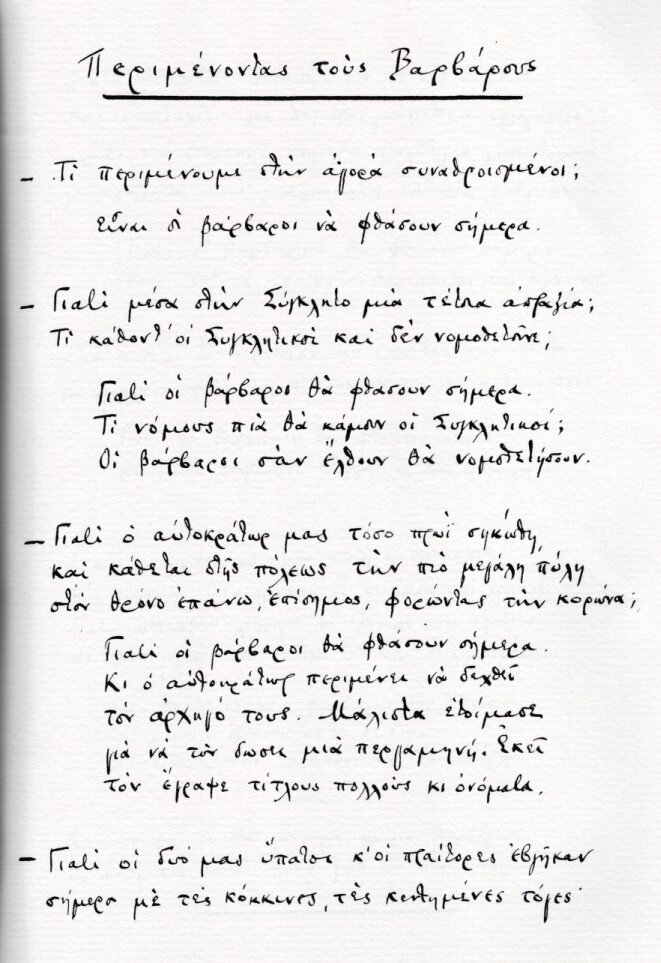 Περιμένοντας τοὺς Βαρβάρους
- Τὶ περιμένουμε στὴν ἀγορὰ συναθροισμένοι;
Εἶναι οἱ βάρβαροι νὰ φθάσουν σήμερα.
- Γιατὶ μέσα στὴν Σύγκλητο μιὰ τέτοια ἀπραξία;
Τὶ κάθοντ' οἱ Συγκλητικοὶ καὶ δὲν νομοθετοῦνε;
Γιατὶ οἱ βάρβαροι θὰ φθάσουν σήμερα.
Τὶ νόμους πιὰ θὰ κάμουν οἱ Συγκλητικοί;
Οἱ βάρβαροι σὰν ἔλθουν θὰ νομοθετήσουν.
- Γιατὶ ὁ αὐτοκράτωρ μας τόσο πρωῒ σηκώθη,
καὶ κάθεται στῆς πόλεως τὴν πιὸ μεγάλη πύλη
στὸν θρόνο ἐπάνω, ἐπίσημος, φορώντας τὴν κορώνα;
Γιατὶ οἱ βάρβαροι θὰ φθάσουν σήμερα.
Κι ὁ αὐτοκράτωρ περιμένει νὰ δεχθεῖ
τὸν ἀρχηγό τους. Μάλιστα ἑτοίμασε
γιὰ νὰ τὸν δώσει μιὰ περγαμηνή. Ἐκεῖ
τὸν ἔγραψε τίτλους πολλοὺς κι ὀνόματα.
- Γιατὶ οἱ δυό μας ὕπατοι κ' οἱ πραίτορες ἐβγῆκαν
σήμερα μὲ τὲς κόκκινες, τὲς κεντημένες τόγες·